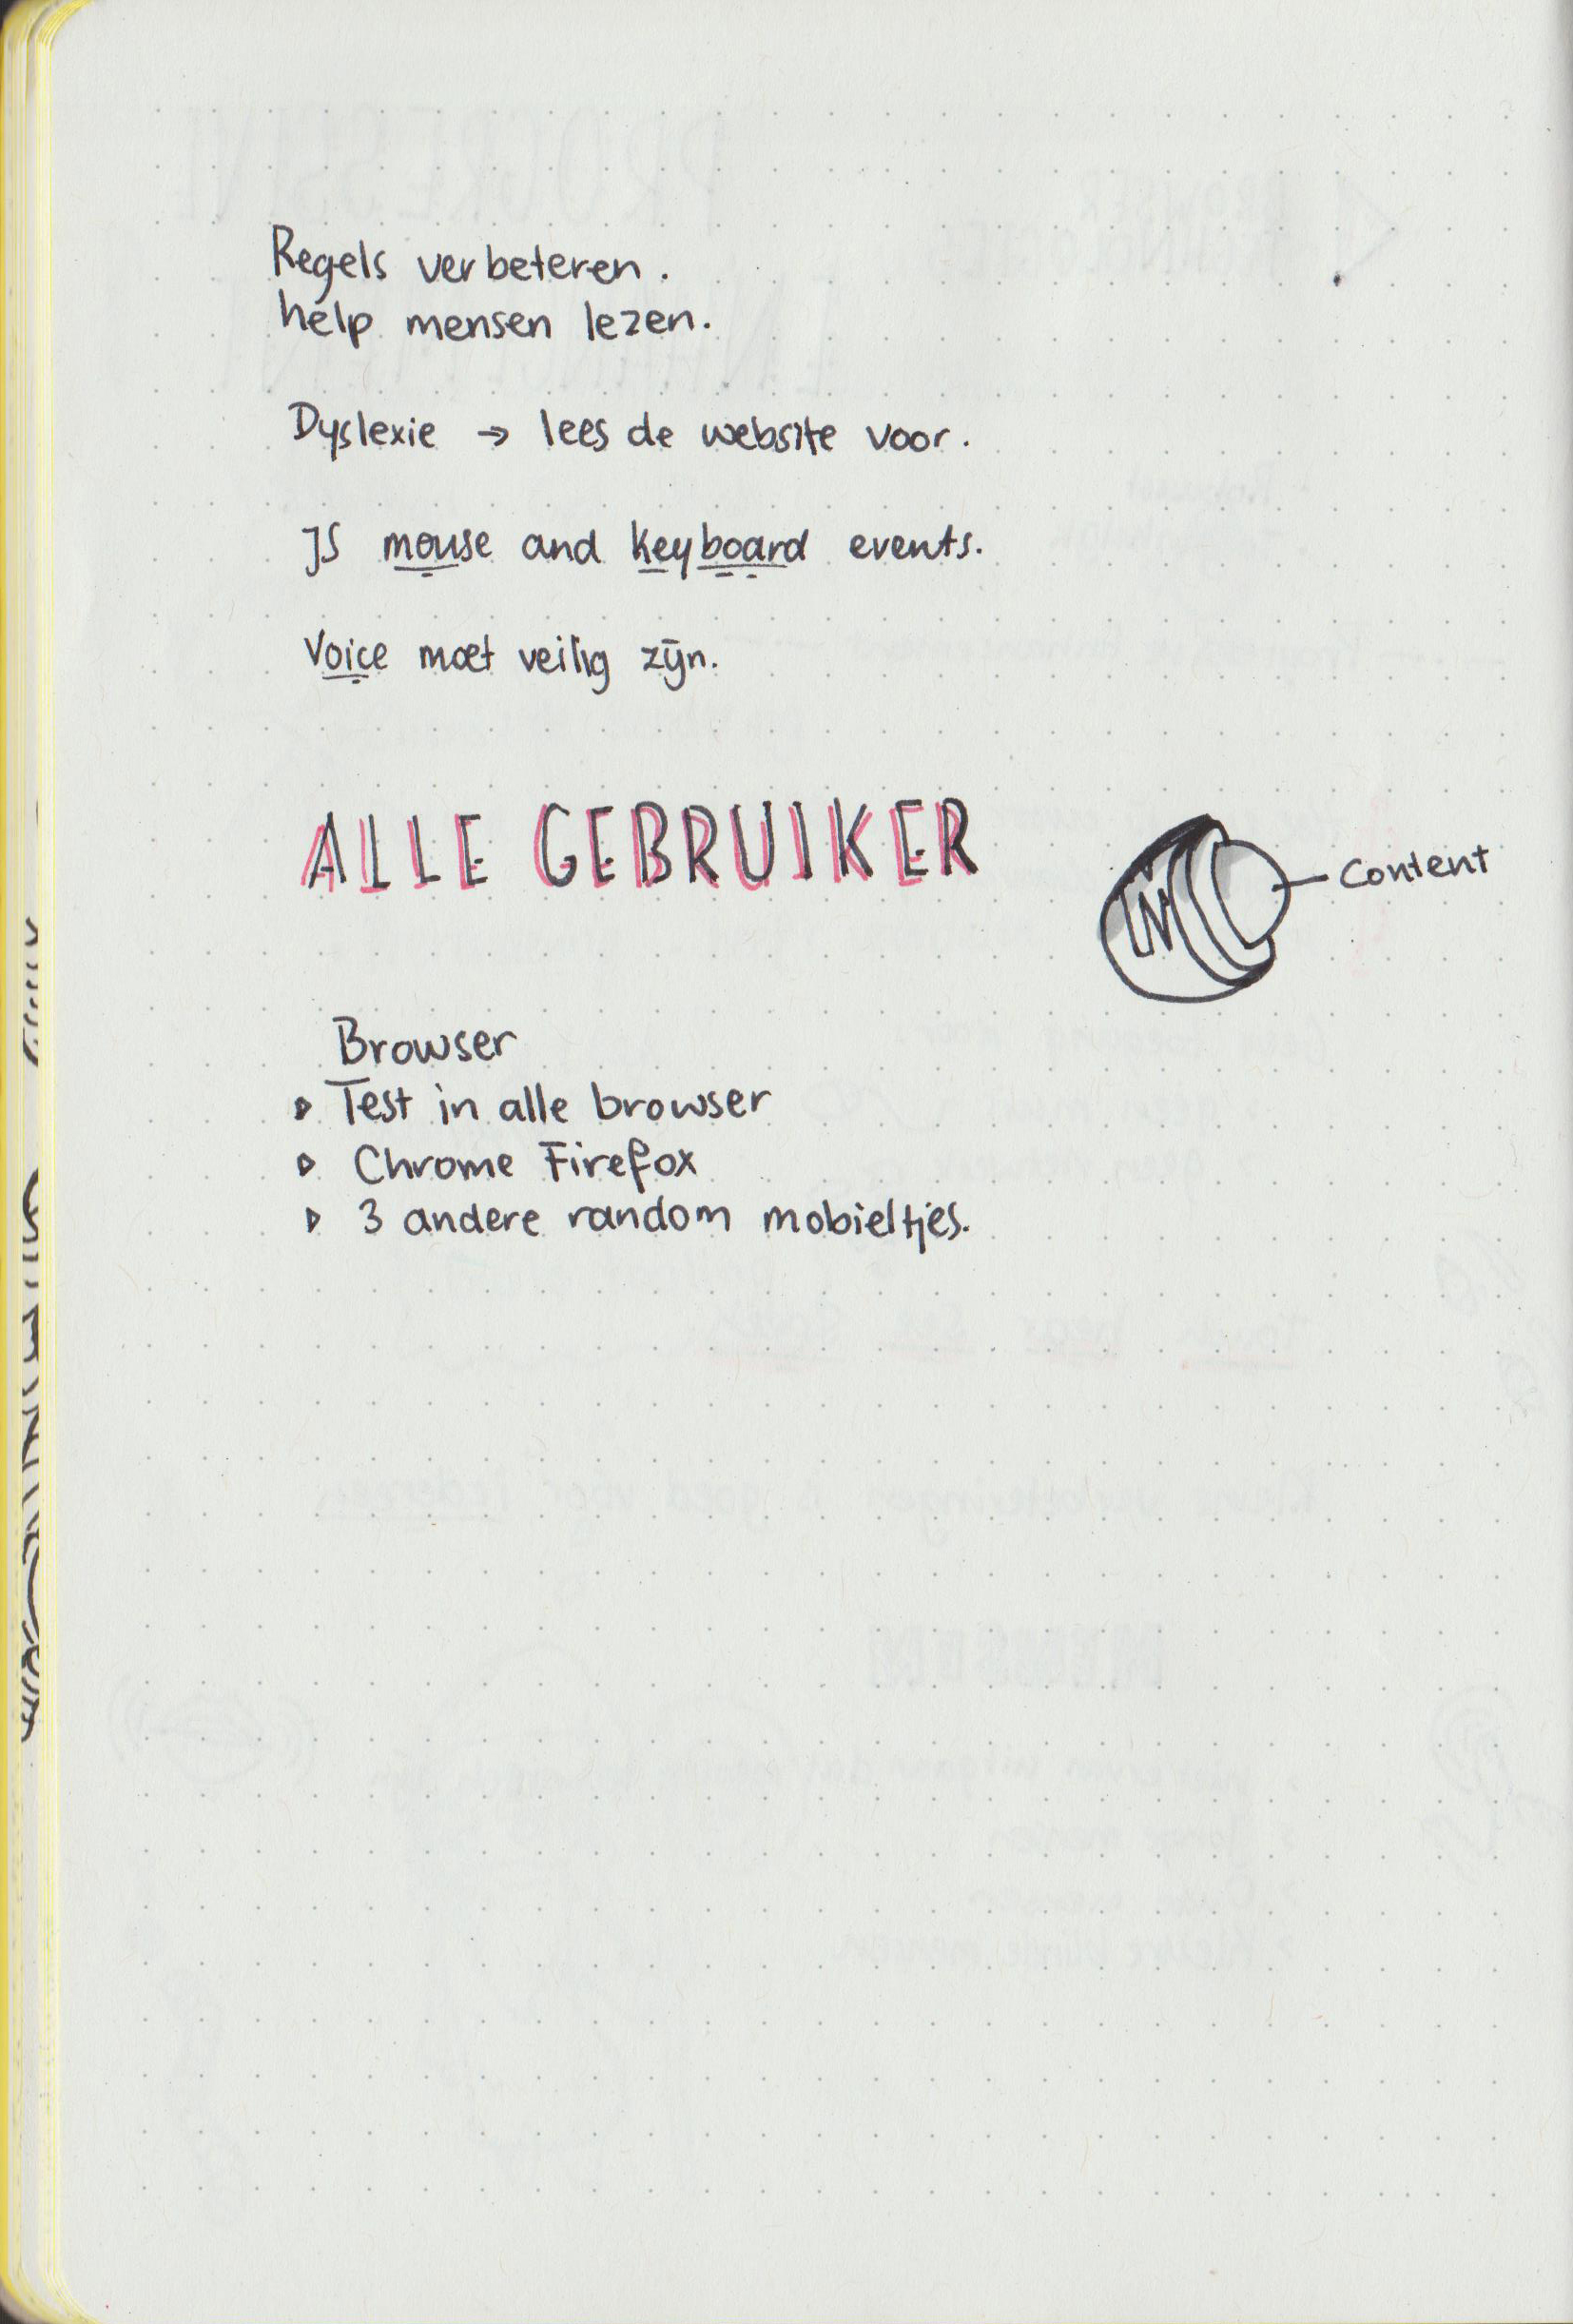 Regels verbeteren.
help mensen lezen.
Dyslexie → lees de website voor.
JS mouse and keyboard events.
Voice moet veilig zijn.
ALLE GEBRUIKER
Content
Browser
▹ Test in alle browser
▹ Chrome Firefox
▹ 3 andere random mobieltjes.